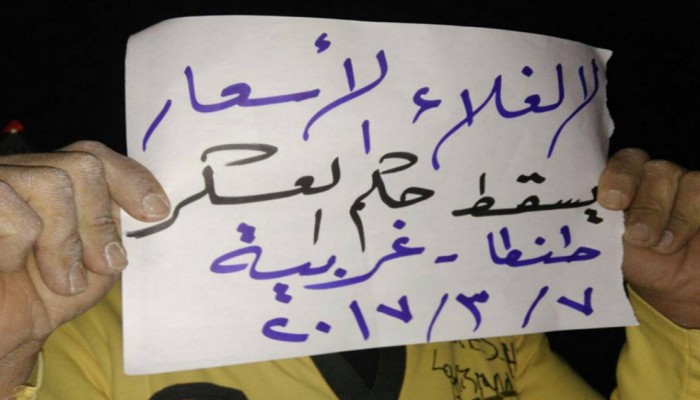 لا لغلاء لأسعار
يسقط حكم العسكر
طنطا - غربية
٢٠١٧/٣/٧